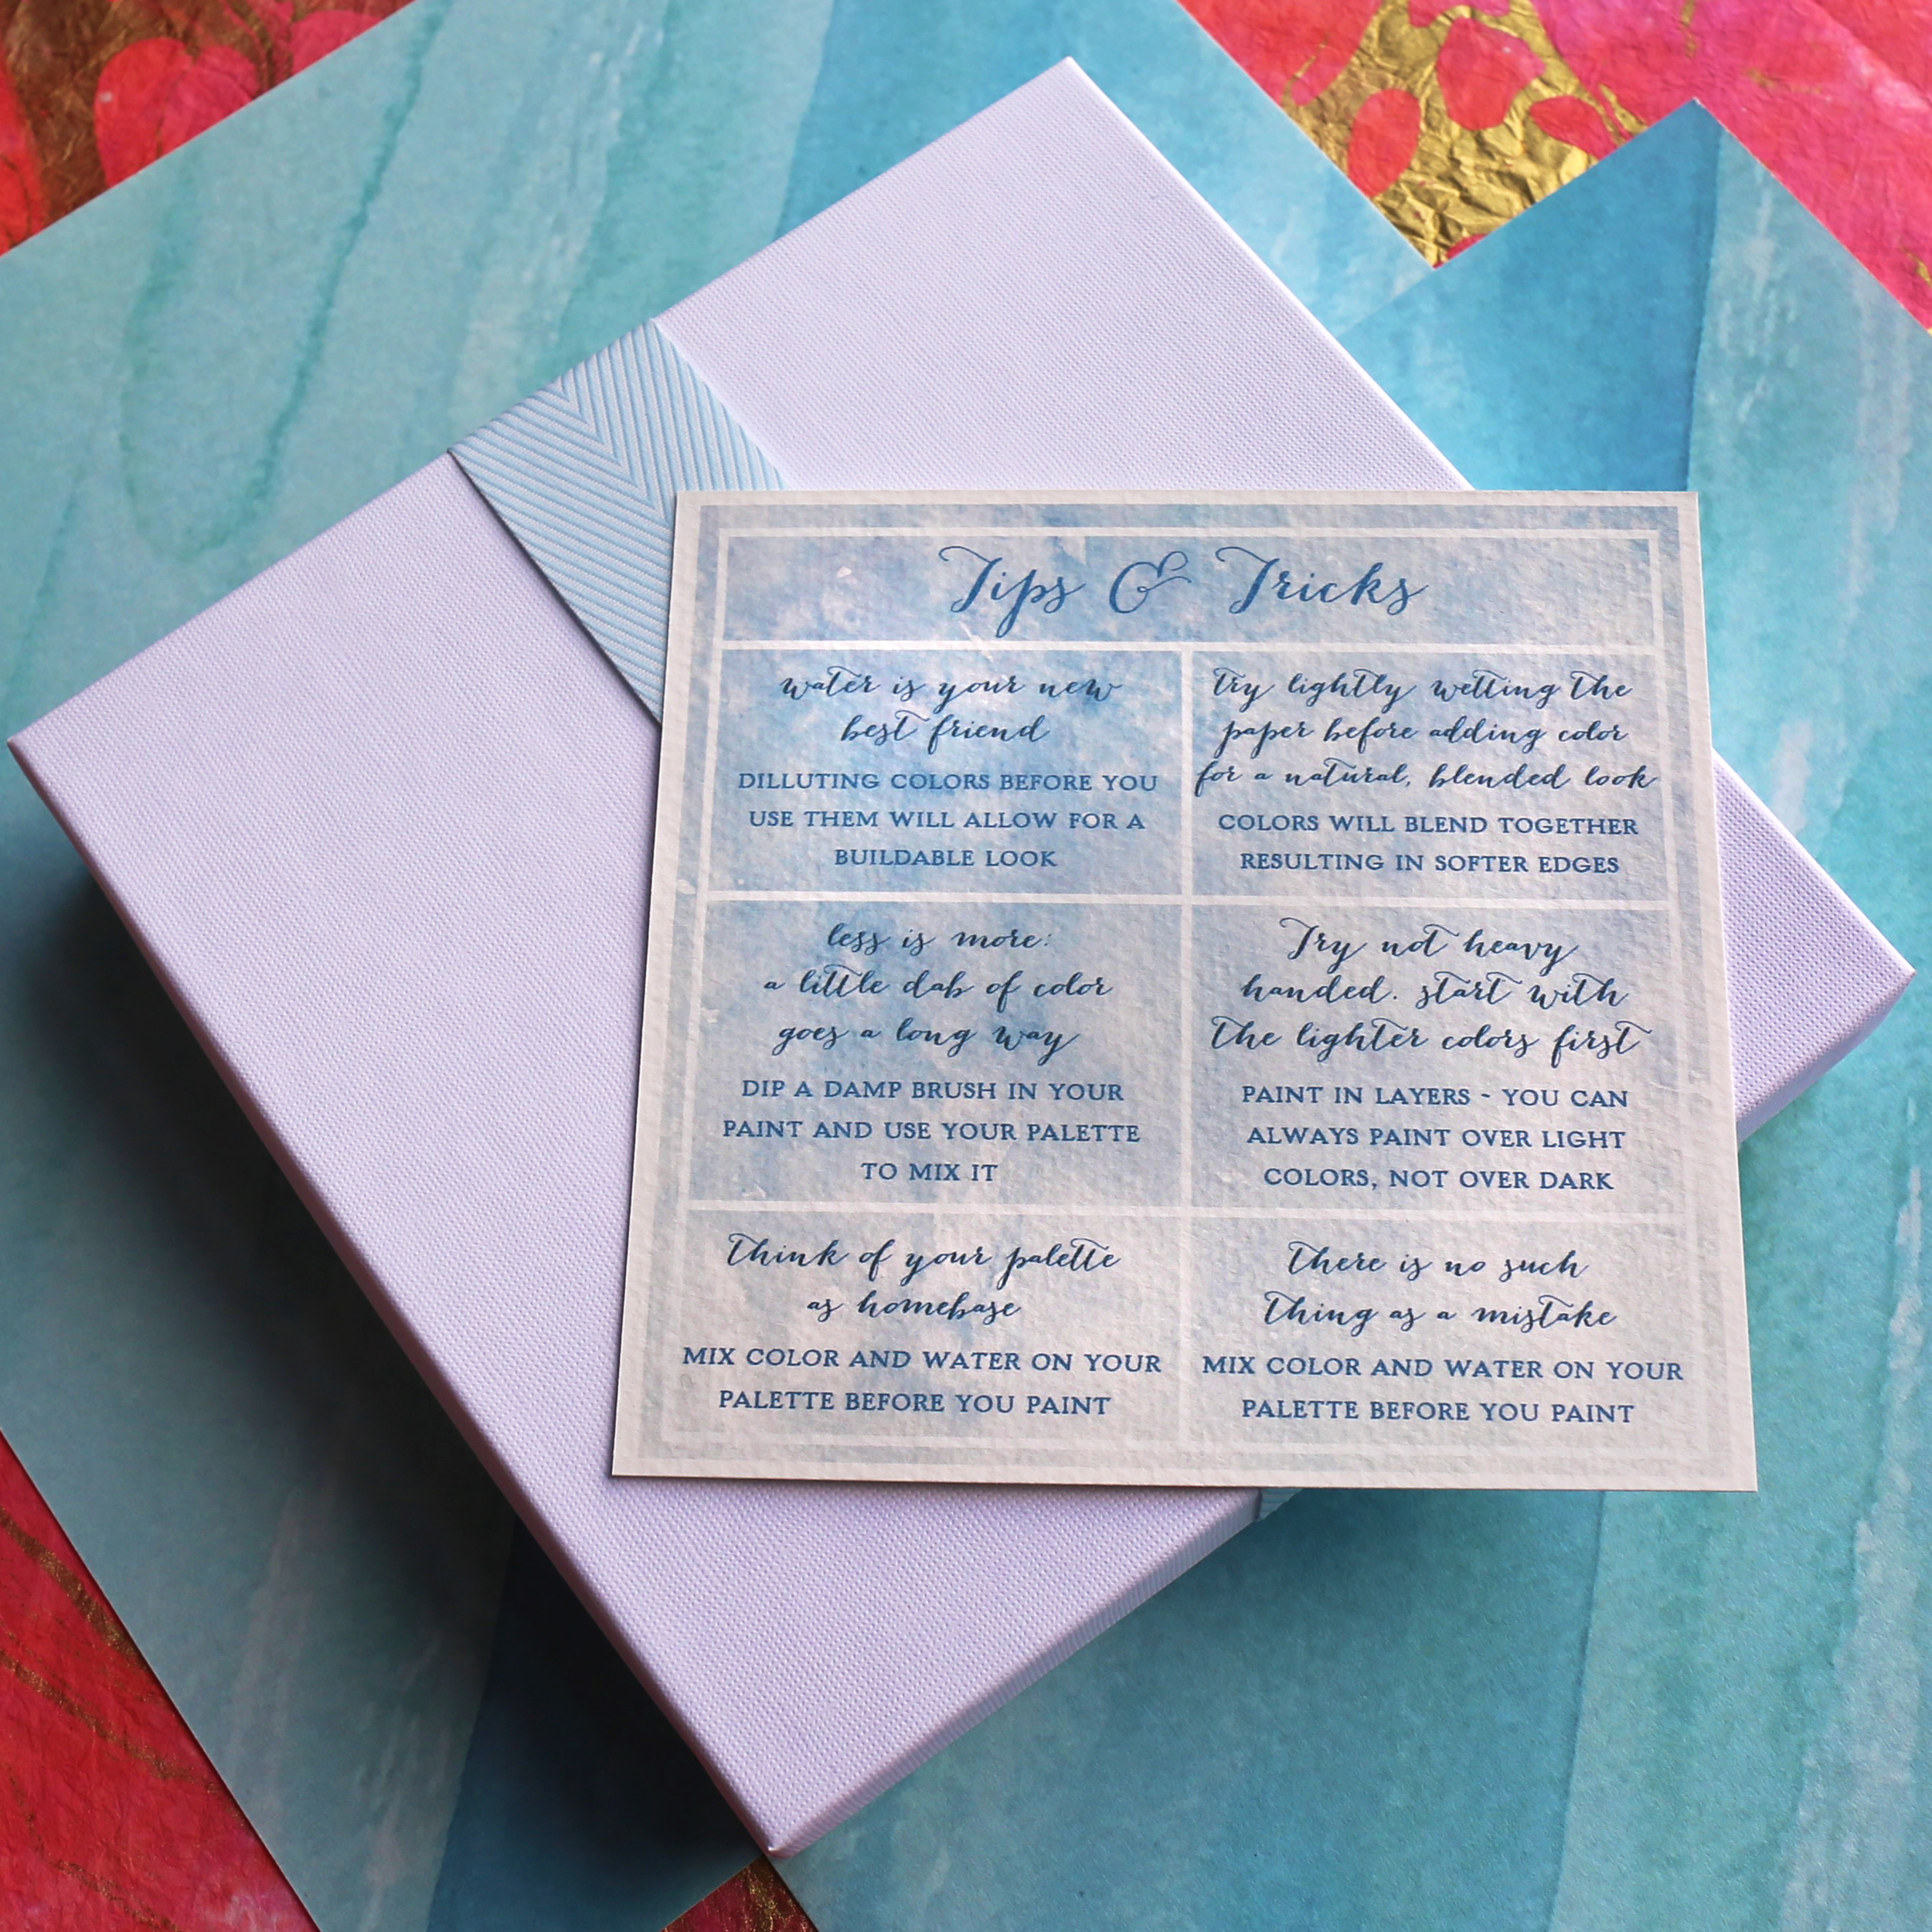 Tips & Tricks
water is your new
best friend
DILLUTING COLORS BEFORE YOU
USE THEM WILL ALLOW FOR A
BUILDABLE LOOK
try lightly wetting the
paper before adding color
for a natural, blended look
COLORS WILL BLEND TOGETHER
RESULTING IN SOFTER EDGES
less is more:
a little dab of color
goes a long way
DIP A DAMP BRUSH IN YOUR
PAINT AND USE YOUR PALETTE
TO MIX IT
Try not heavy
handed. start with
the lighter colors first
PAINT IN LAYERS - YOU CAN
ALWAYS PAINT OVER LIGHT
COLORS, NOT OVER DARK
Think of your palette
as homebase
MIX COLOR AND WATER ON YOUR
PALETTE BEFORE YOU PAINT
There is no such
thing as a mistake
MIX COLOR AND WATER ON YOUR
PALETTE BEFORE YOU PAINT